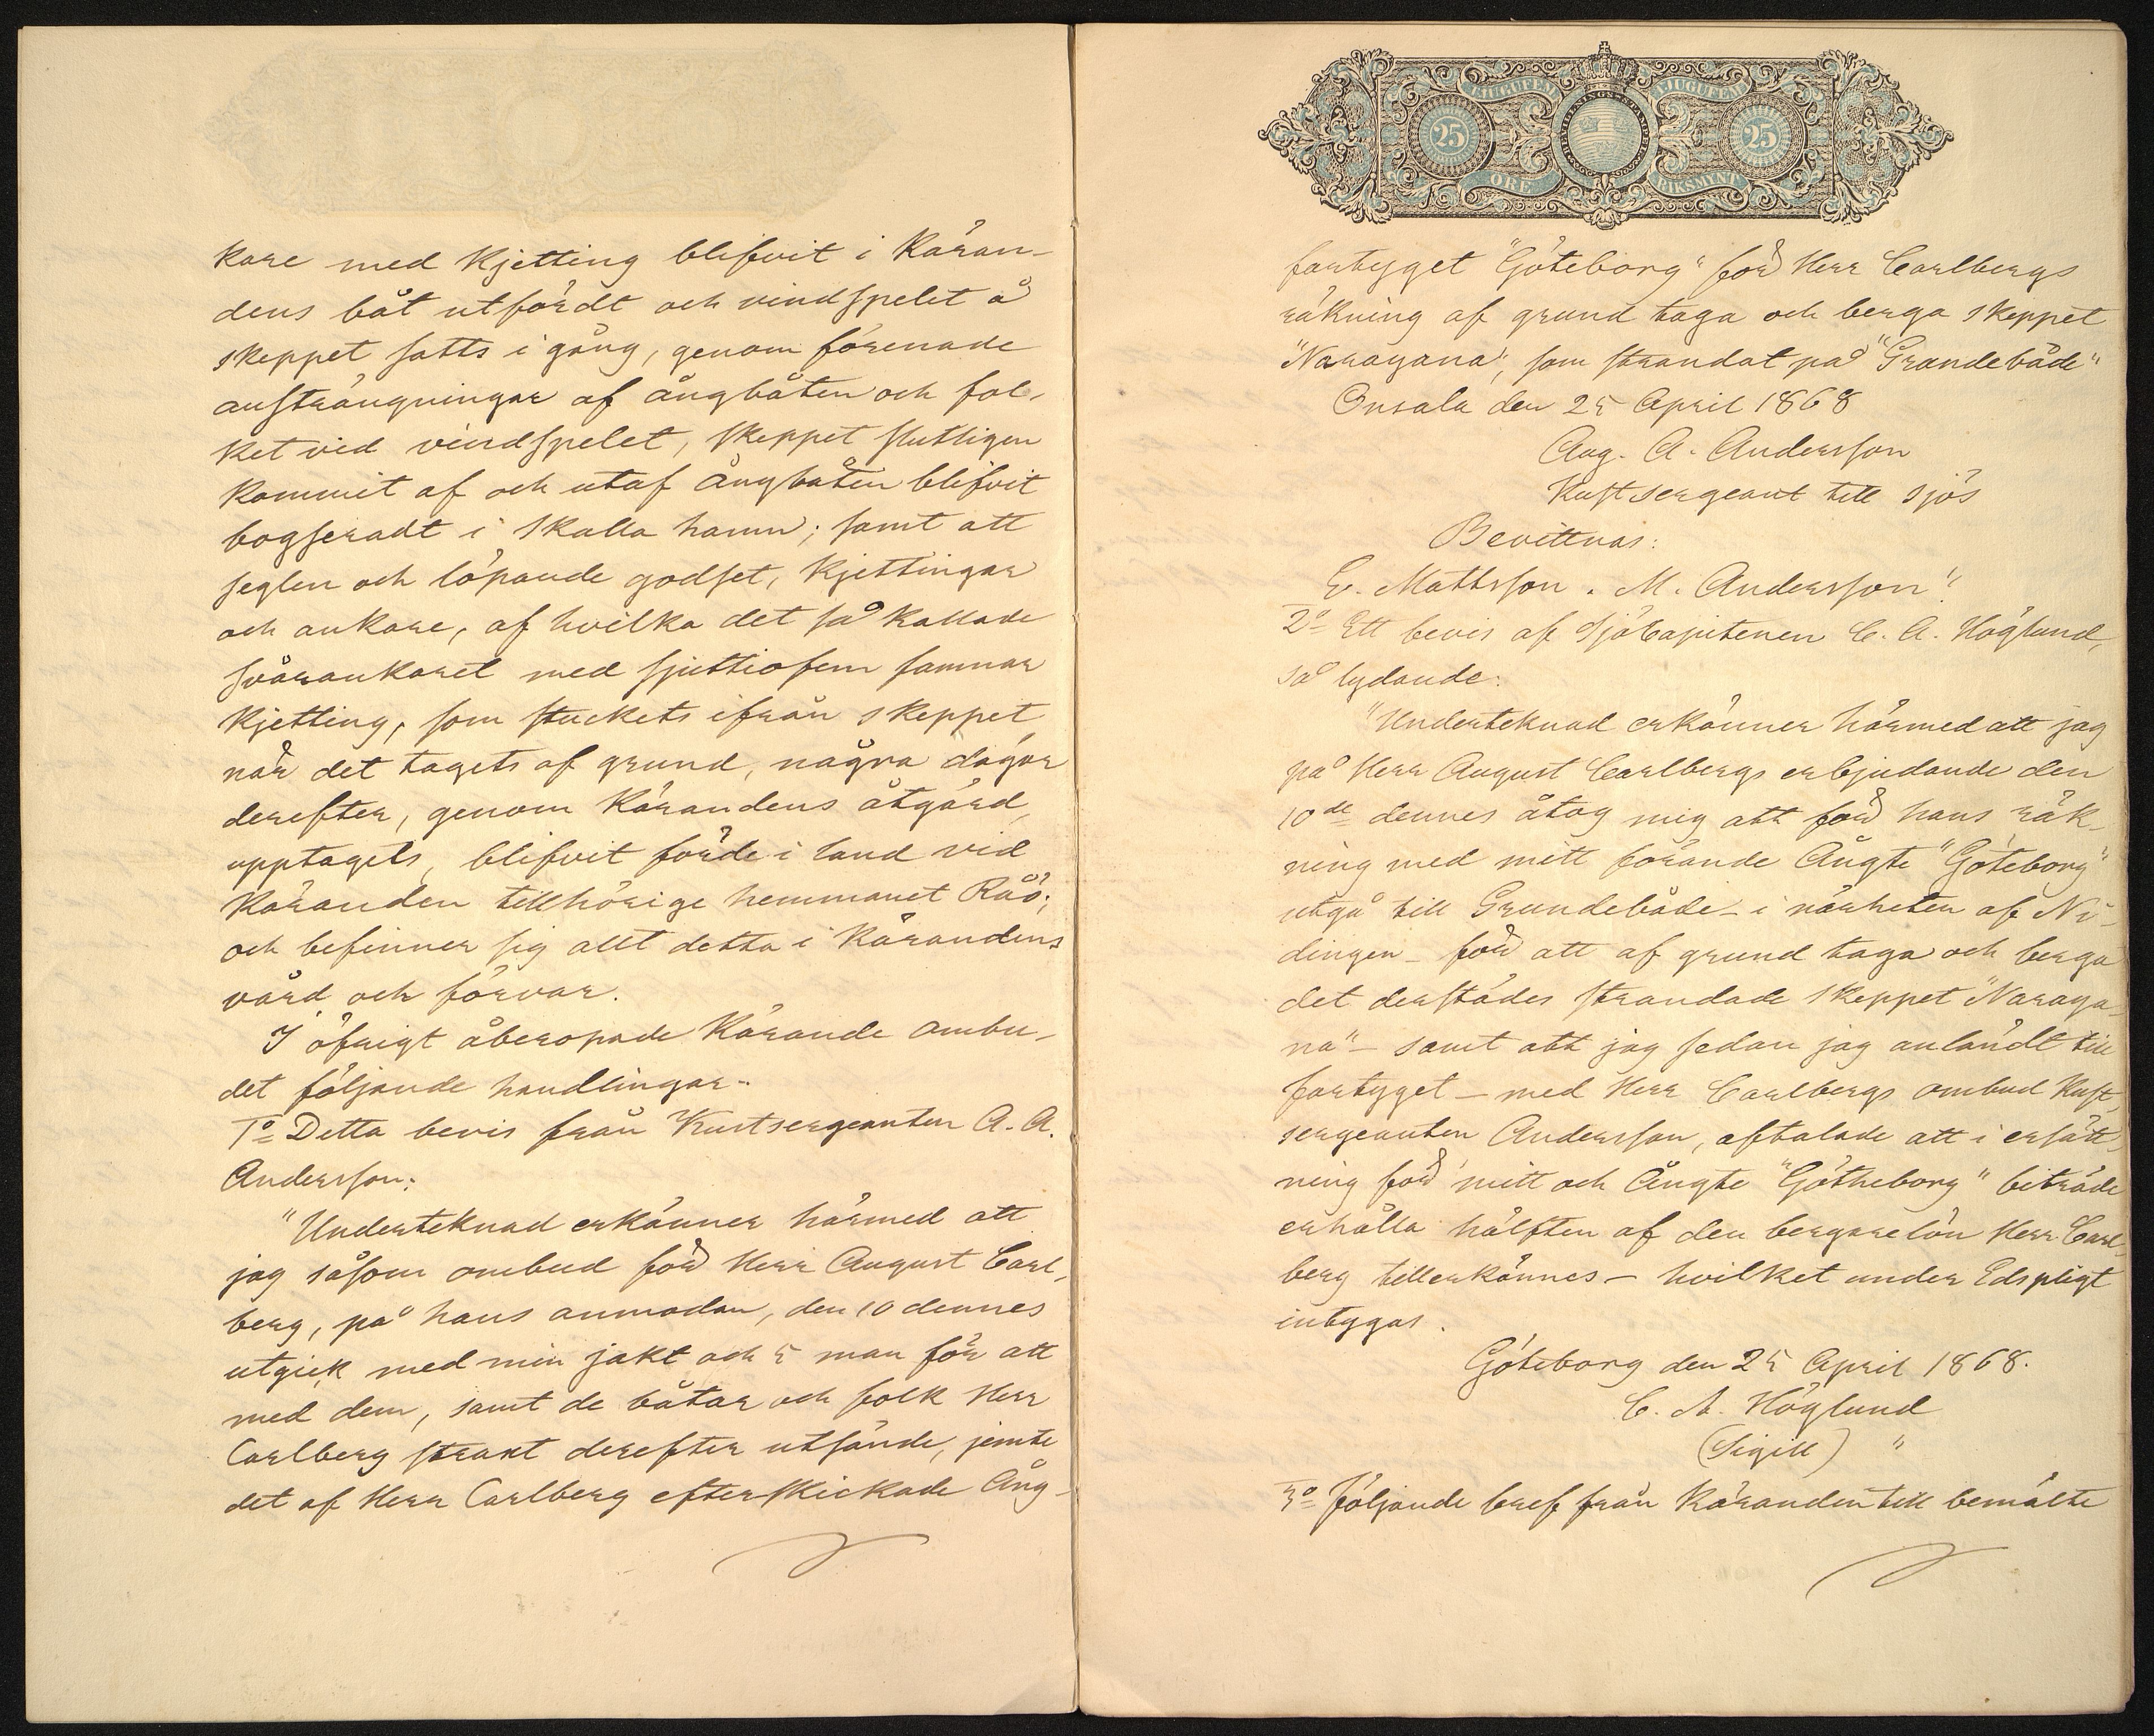 kare med Kjetting blifvit i Käran-
dens båt utfördt och vindspelet å
skeppet satts i gång, genom förenade
ansträngningar af ångbåten och fol-
ket vid vindspelet, skeppet slutligen
kommit af och utaf ångbåten blifvit
bogseradt i Skalla hamn; samt att
seglen och löpande godset, kjettingar
och ankare, af hvilka det så kallade
svårankaret med sjuttiofem famnar
Kjetting, som stuckets ifrån skeppet,
när det tagets af grund, några dagar
derefter, genom Kärandens åtgärd,
upptagets, blifvit förde i land vid
Käranden tillhörige hemmanet Råö;
och befinner sig allt detta i Kärandens
vård och förvar.
I öfrigt åberopade Kärande ombu-
det följande handlingar:
1º Detta bevis från Kustsergeanten A. A.
Andersson:
"Undertecknad erkänner härmed att
jag såsom ombud för Herr August Carl-
berg, på hans anmodan, den 10 dennes
utgick med min jakt och 5 man för att
med dem, samt de båtar och folk Herr
Carlberg strax derefter utsände, jemte
det af Herr Carlberg efterskickade Ång-
TJUGUFEM TJUGUFEM
BEVILLNINGS-STÄMPEL
25 25
ÖRE RIKSMYNT
fartyget "Göteborg" för Herr Carlbergs
räkning af grund taga och berga skeppet
"Narayana", som strandat på "Grundebåde"
Onsala den 25 April 1868
Aug. A. Andersson
Kustsergeant till sjös
Bevittnas:
E. Mattsson. M. Andersson"
2º Ett bevis af SjöCapitenen C. A. Höglund,
så lydande:
"Underteknad erkänner härmed att jag
på Herr August Carlbergs erbjudande den
10de dennes åtog mig att för hans räk-
ning med mitt förande Ångfe "Göteborg"
utgå till Grundebåde - i närheten af Ni-
dingen - för att af grund taga och berga
det derstädes strandade skeppet "Naraya-
na" - samt att jag sedan jag anländt till
fartyget - med Herr Carlbergs ombud Kust-
sergeanten Andersson, aftalade att i ersätt-
ning för mitt och Ångfe "Götheborg" biträde
erhålla hälften af den bergarelön Herr Carl-
berg tillerkännes - hvilket under Edspligt
intygas.
Göteborg den 25 April 1868.
C. A. Höglund
(Sigill) "
3º Följande bref från Käranden till bemälte